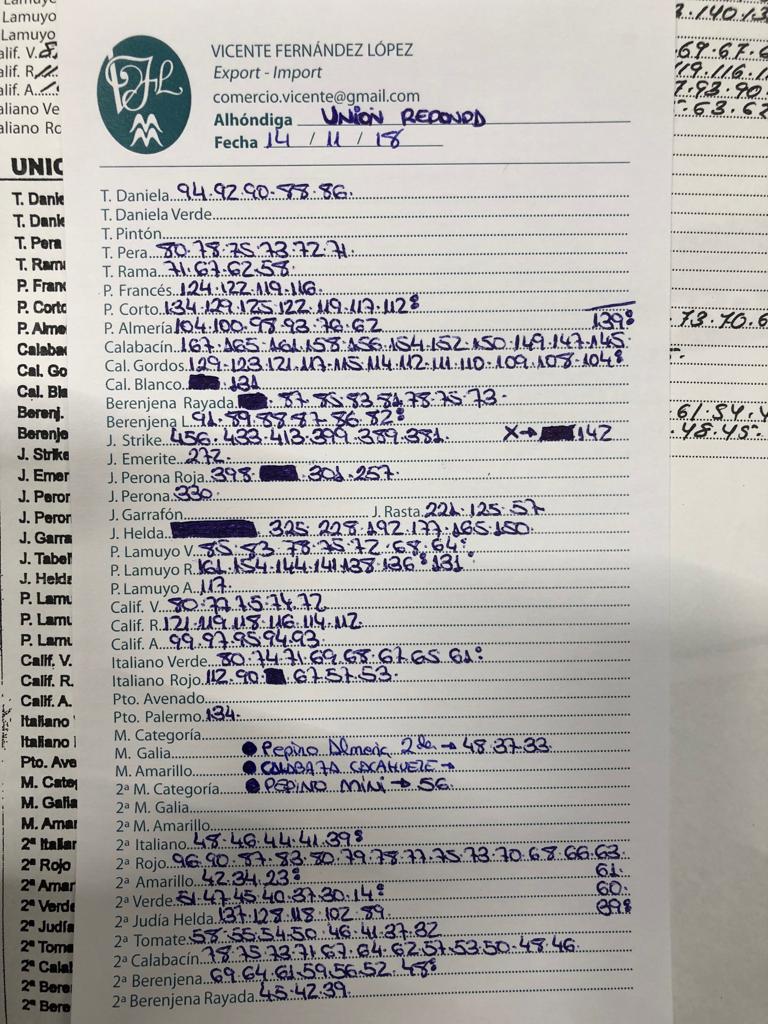 VICENTE FERNÁNDEZ LÓPEZ
Export - Import
comercio.vicente@gmail.com
Alhóndiga UNION REDONDA
Fecha 14 / 11 / 18
T. Daniela 94.92.90.88.86.
T. Daniela Verde
T. Pintón
T. Pera 80.78.75.73.72.71
T. Rama 71.67.62.58
P. Francés 124.122.119.116
P. Corto 134.129.125.122.119.117.112:
P. Almería 104.100.98.93.70.62 139:
Calabacín 167.165.161.158.156.154.152.150.149.147.145
Cal. Gordos 129.123.121.117.115.114.112.111.110.109.108.104:
Cal. Blanco 131
Berenjena Rayada 87.85.83.81.78.75.73.
Berenjena L. 91.89.88.87.86.82:
J. Strike 456.433.413.399.389.381. X→ 142
J. Emerite 272
J. Perona Roja 398 301.257.
J. Perona 330
J. Garrafón J. Rasta 221.125.57
J. Helda 325.228.192.177.165.150
P. Lamuyo V. 85.83.78.75.72.68.64:
P. Lamuyo R. 161.154.144.141.138.136:131:
P. Lamuyo A. 117
Calif. V. 80.77.75.74.72
Calif. R. 121.119.118.116.114.112
Calif. A. 99.97.95.94.93
Italiano Verde 80.74.71.69.68.67.65.61:
Italiano Rojo 112.90. 67.57.53.
Pto. Avenado
Pto. Palermo 134.
M. Categoría
M. Galia ● Pepino Almeria 2da → 48.37.33
M. Amarillo ● CALABAZA CACAHUETE →
2ª M. Categoría ● PEPINO MINI → 56.
2ª M. Galia
2ª M. Amarillo
2ª Italiano 48.46.44.41.39:
2ª Rojo 96.90.87.83.80.79.78.77.75.73.70.68.66.63
2ª Amarillo 42.34.23: 61.
2ª Verde 51.47.45.40.37.30.14: 60.
2ª Judía Helda 137.128.118.102.89 39:
2ª Tomate 58.55.54.50.46.41.37.32
2ª Calabacín 78.75.73.71.67.64.62.57.53.50.48.46.
2ª Berenjena 69.64.61.59.56.52.48:
2ª Berenjena Rayada 45.42.39.
Lamuyo
Lamuyo
UNIC
T. Pera
P. Corto
P. Alme
Cal. Go
Berenj.
J. Strike
J. Emer
J. Peror
J. Peror
J. Garra
J. Tabel
J. Helda
P. Lamu
P. Lamu
P. Lamu
Calif. V.
Calif. R.
Calif. A.
Italiano
Pto. Ave
M. Cate
M. Galia
M. Amar
2ª Italian
2ª Rojo
2ª Amar
2ª Verde
2ª Judía
2ª Toma
2ª Bere
2ª Bere